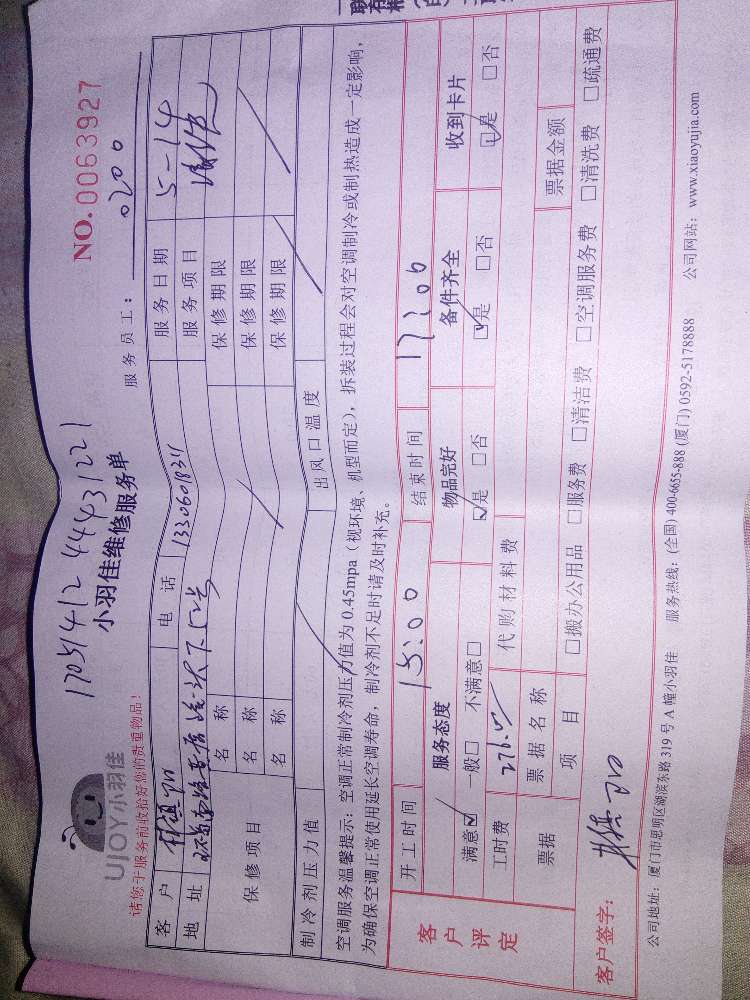 17051412 44431221
NO.0063927
UJOY小羽佳
小羽佳维修服务单
请您于服务前收拾好您的贵重物品!
服务员工: 0200
客户 电话 1330601831 服务日期 5-14
地址 服务项目
保修项目
名称 保修期限
名称 保修期限
名称 保修期限
制冷剂压力值 出风口温度
空调服务温馨提示: 空调正常制冷剂压力值为 0.45mpa (视环境、机型而定), 拆装过程会对空调制冷或制热造成一定影响,
为确保空调正常使用延长空调寿命, 制冷剂不足时请及时补充。
客户评定
开工时间 15:00 结束时间 17:00
服务态度 物品完好 备件齐全 收到卡片
满意☑ 一般□ 不满意□ ☑是 □否 ☑是 □否 ☑是 □否
工时费 代购材料费
票据 票据名称 票据金额
项目 □搬办公用品 □服务费 □清洁费 □空调服务费 □清洗费 □疏通费
客户签字:
公司地址: 厦门市思明区湖滨东路 319 号 A 幢小羽佳 服务热线: (全国) 400-6655-888 (厦门) 0592-5178888 公司网站: www.xiaoyujia.com